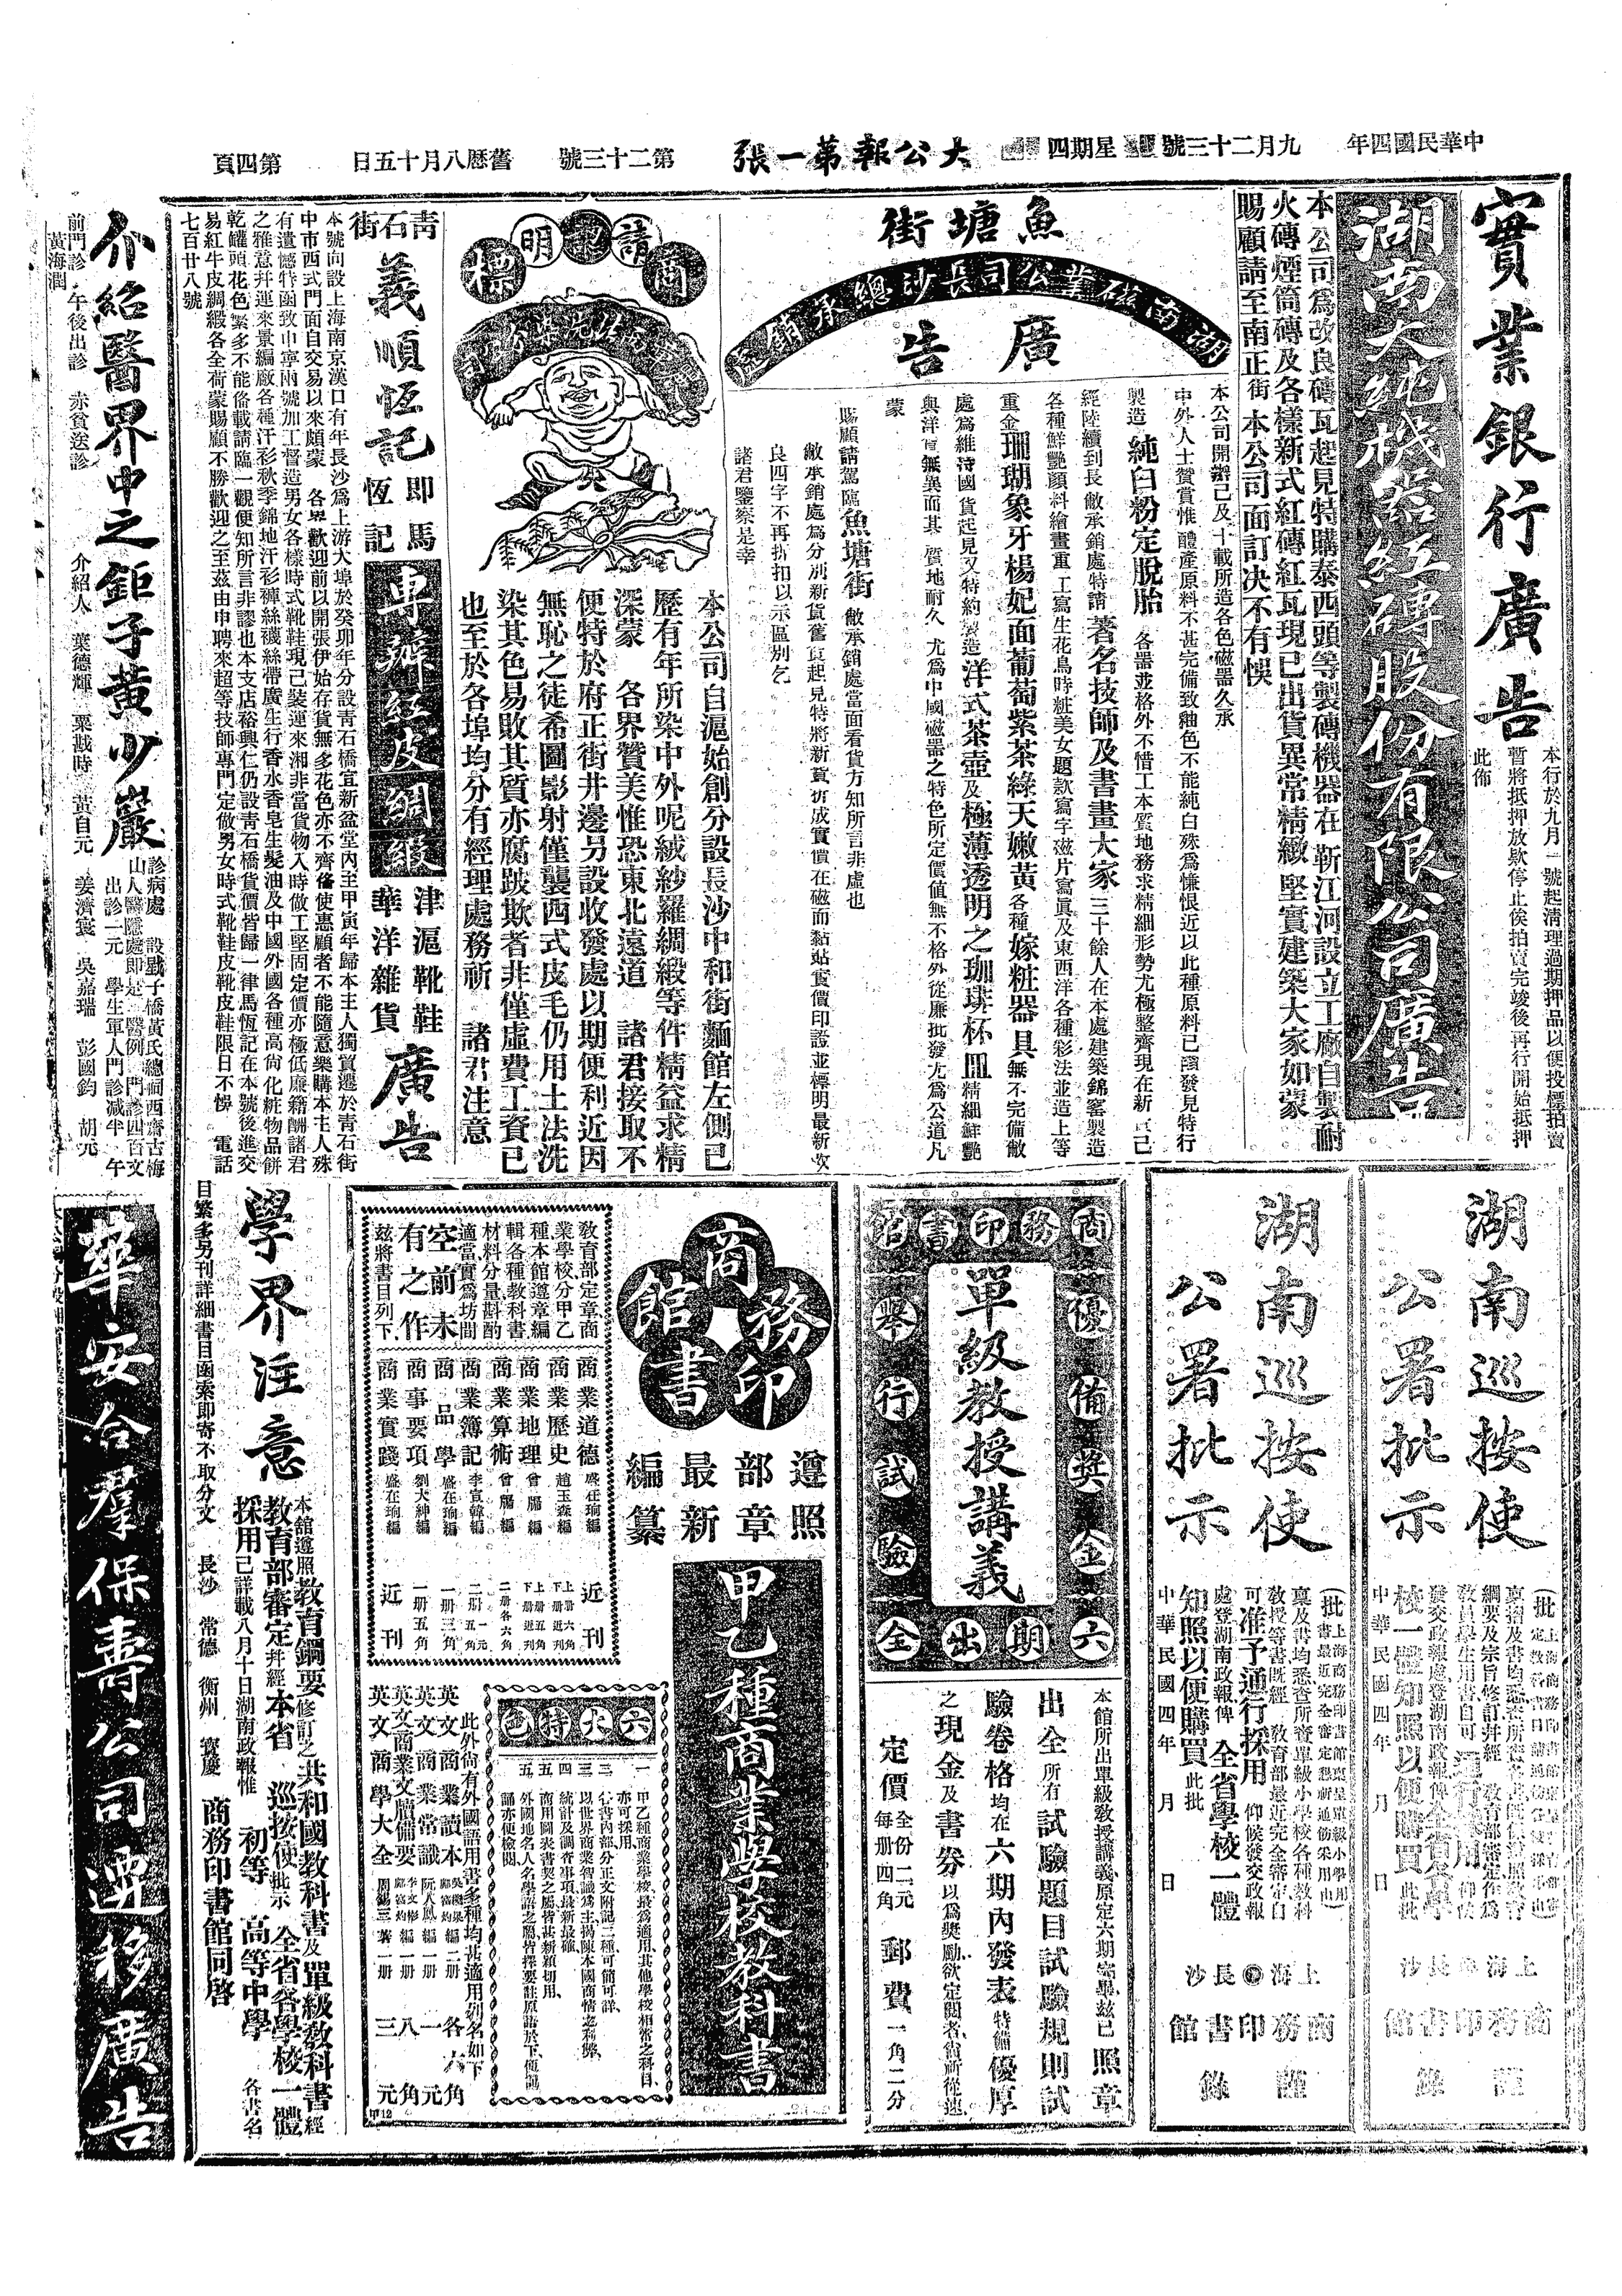 中華民國四年
九月二十三號
星期四
大公報第一張
第二十三號
舊曆八月十五日
第四頁
實業銀行廣告
本行於九月一號起清理過期押品以便投標拍賣
暫將抵押放欵停止俟拍賣完竣後再行開始抵押
此佈
湖南大純機器紅磚股份有限公司廣告
本公司爲改良磚瓦起見特購泰西頭等製磚機器在靳江河設立工廠自製耐
火磚煙筒磚及各樣新式紅磚紅瓦現已出貨異常精緻堅實建築大家如蒙
賜顧請至南正街本公司面訂決不有悞
魚塘街
湖南磁業公司長沙總承銷處
廣告
本公司開辦已及十載所造各色磁器久承
中外人士贊賞惟醴產原料不甚完備致釉色不能純白殊爲慊恨近以此種原料已發見特行
製造純白粉定脫胎各器並格外不惜工本質地務求精細形勢尤極整齊現在新已
經陸續到長敝承銷處特請著名技師及書畫大家三十餘人在本處建築錦窰製造
各種鮮艷顏料繪畫重工寫生花鳥時粧美女題款寫字磁片寫眞及東西洋各種彩法並造上等
重金珊瑚象牙楊妃面葡萄紫茶綠天嫩黃各種嫁粧器具無不完備敝
處爲維持國貨起見又特約製造洋式茶壺及極薄透明之珈琲杯皿精細鮮艷
與洋無異而其質地耐久尤爲中國磁器之特色所定價值無不格外從廉批發尤爲公道凡
蒙
賜顧請駕臨魚塘街敝承銷處當面看貨方知所言非虛也
敝承銷處爲分別新貨舊貨起見特將新貨折成實價在磁面黏站實價印證並標明最新改
良四字不再折扣以示區別乞
諸君鑒察是幸
請認明商標
本公司自滬始創分設長沙中和街麵館左側已
歷有年所染中外呢絨紗羅綢緞等件精益求精
深蒙　各界贊美惟恐東北遠道　諸君接取不
便特於府正街井邊另設收發處以期便利近因
無恥之徒希圖影射僅襲西式皮毛仍用土法洗
染其色易敗其質亦腐跛欺者非僅虛費工資已
也至於各埠均分有經理處務祈　諸君注意
青石街
義順恆記
即馬恆記
專辦紅皮綢緞
津滬靴鞋
華洋雜貨
廣告
本號向設上海南京漢口有年長沙爲上游大埠於癸卯年分設靑石橋宜新盆堂內至甲寅年歸本主人獨買遷於靑石街
中市西式門面自交易以來頗蒙　各界歡迎前以開張伊始存貨無多花色亦不齊偹使惠顧者不能隨意樂購本主人殊
有遺憾特函致申寧兩號加工督造男女各樣時式靴鞋現己裝運來湘非當貨物入時做工堅固定價亦極低廉藉酬諸君
之雅意幷運來景綸廠各種汗衫秋季錦地汗衫褲絲襪絲帶廣生行香水香皂生髮油及中國外國各種高尙化粧物品餅
乾罐頭花色繁多不能偹載請臨一觀便知所言非謬也本支店裕興仁仍設靑石橋貨價皆歸一律馬恆記在本號後進交
易紅牛皮綢緞各全荷蒙賜顧不勝歡迎之至茲由申聘來超等技師專門定做男女時式靴鞋皮靴皮鞋限日不悞　電話
七百廿八號
介紹醫界中之鉅子黃少巖
診病處　設戥子橋黃氏總祠西齋古梅
山人醫隱處即是　醫例　門診四百文
出診一元　學生軍人門診減半　午
前門診　午後出診　赤貧送診
介紹人　葉德輝　粟戡時　黃自元　姜濟寰　吳嘉瑞　彭國鈞　胡元
黃海潤
湖南巡按使
公署批示
校一體知照以便購買此批
中華民國四年　月　日
上海長沙
商務印書館
謹錄
湖南巡按使
公署批示
(批上海商務印書館稟呈單級小學用
書最近完全審定懇祈通飭采用由)
稟及書均悉查所賫單級小學校各種敎科
敎授等書既經　敎育部最近完全審定自
可准予通行採用　仰候發交政報
處登湖南政報俾　全省學校一體
知照以便購買此批
中華民國四年　月　日
上海長沙
商務印書館
謹錄
商務印書館
單級教授講義
優備獎金
舉行試驗
六期出全
本館所出單級敎授講義原定六期完畢茲已照章
出全所有試驗題目試驗規則試
驗卷格均在六期內發表特備優厚
之現金及書券以爲奬勵欲定閱者貲祈從速
定價　全份二元　每册四角　郵費一角二分
商務印書館
遵照部章最新編纂
甲乙種商業學校敎科書
敎育部定章商
業學校分甲乙
種本館遵章編
輯各種敎科書
材料分量斟酌
適當實爲坊間
空前未
有之作
茲將書目列下
商業道德　盛在珦編　近刊
商業歷史　趙玉森編　上册六角　下册近刊
商業地理　曾膺編　上册五角　下册近刊
商業算術　曾膺編　二册各六角
商業簿記　李宣韓編　二册一元五角
商品學　盛在珦編　一册三角
商事要項　劉大紳編　一册五角
商業實踐　盛在珦編　近刊
六大特色
一　甲乙種商業學校最爲適用其他學校相當之科目
亦可採用
二　各書內部分正文附記二種可簡可詳
三　以世界商業智識爲主揭陳本國商情之利弊
四　統計及調查事項最新最確
五　商用圖表書契之屬皆甚新穎切用
外國地名人名學語之屬皆擇要註原語於下便閱
誦亦便檢閱
此外尙有外國語用書多種均甚適用列名如下
英文商業讀本　二册　各六角
英文商業常識　一册　一元
英文商業文牘備要　一册　八角
英文商學大全　周錫三著　一册　三元
甲12
學界注意
本館遵照敎育綱要修訂之共和國敎科書及單級敎科書經
敎育部審定幷經本省　巡按使批示　全省各學校一體
採用已詳載八月十日湖南政報惟　初等　高等中學　各書名
目繁多另刊詳細書目函索即寄不取分文　長沙　常德　衡州　寶慶　商務印書館同啓
華安合羣保壽公司遷移廣告